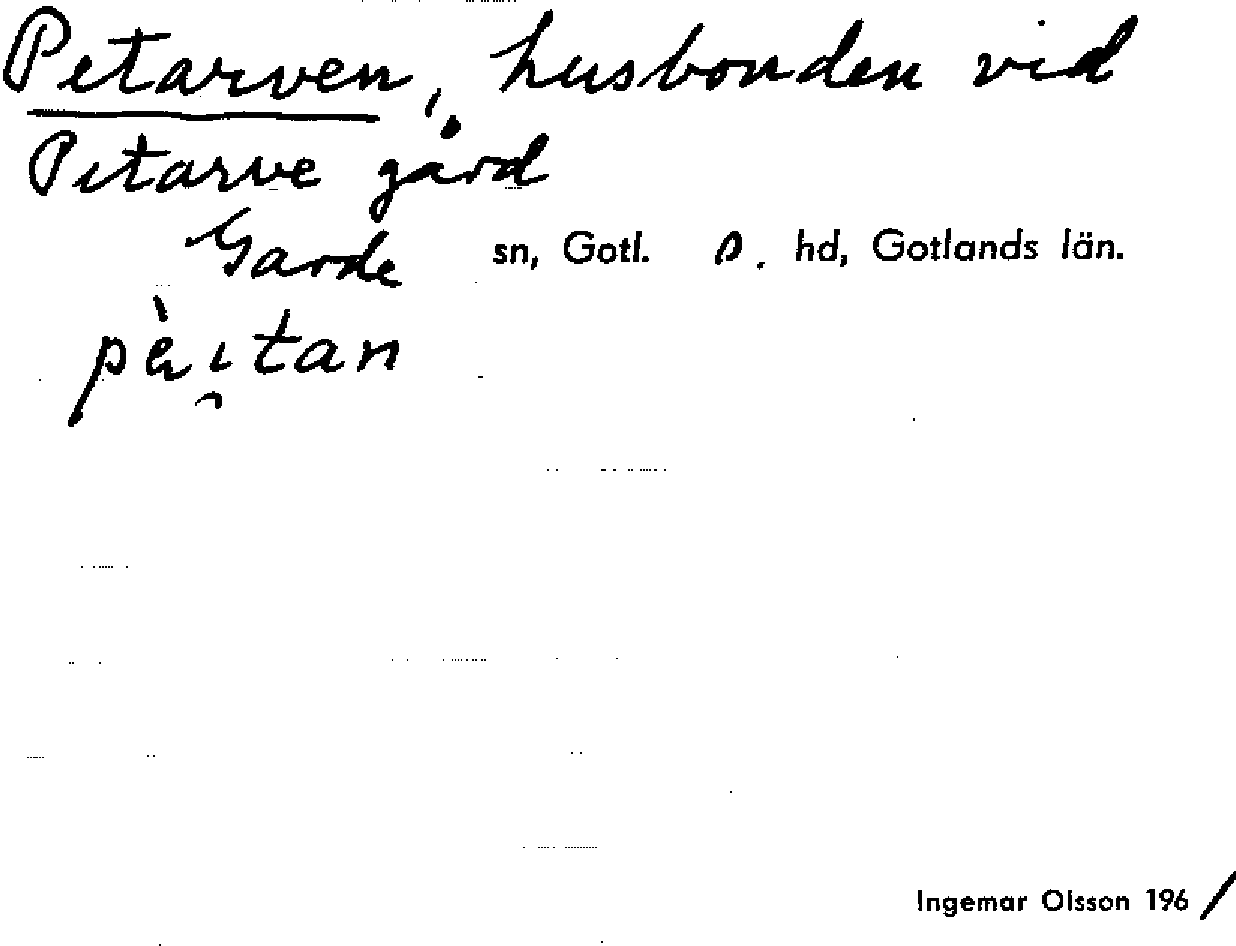 Petarven, husbonden vid
Petarve gård
Garde sn, Gotl. S. hd, Gotlands län.
Ingemar Olsson 196/